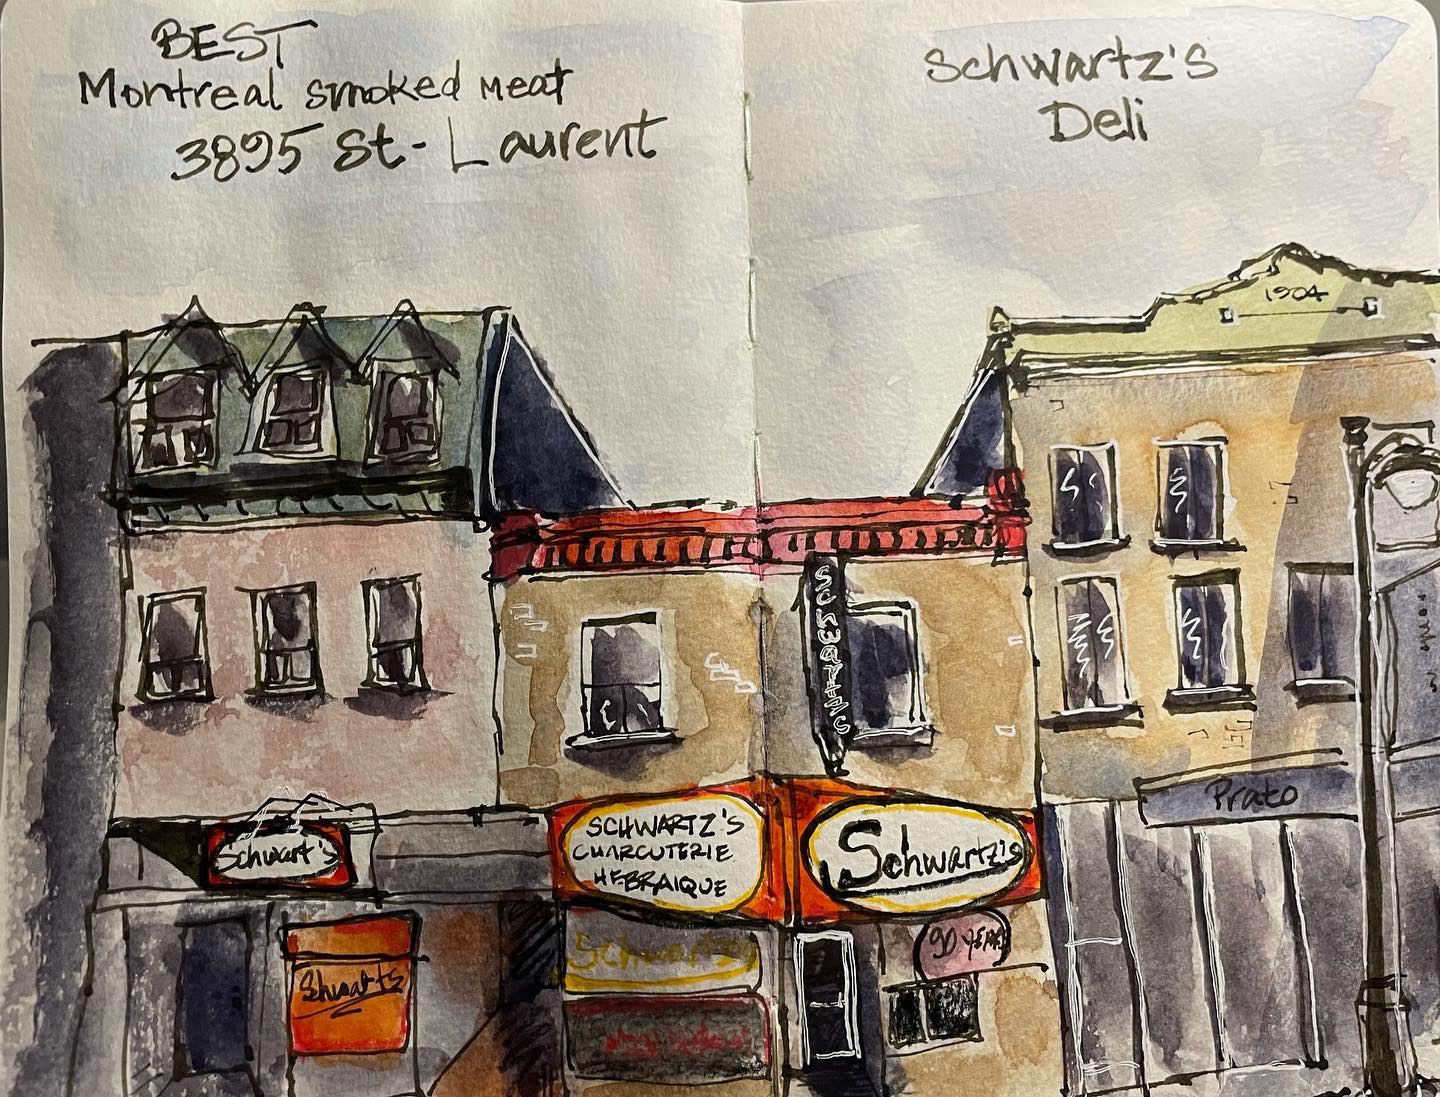 BEST
Montreal smoked meat
3895 St-Laurent
Schwartz's
Deli
1904
SCHWARTZ'S
Prato
Schwart's
SCHWARTZ'S
CHARCUTERIE
HEBRAIQUE
Schwartz's
Shwarts
Schwartz
90 YEARS